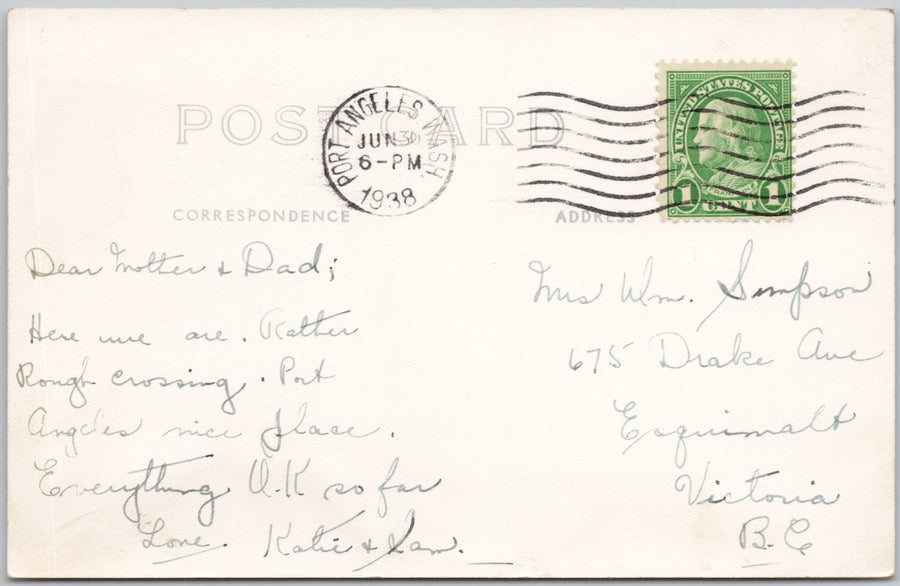 POST CARD
PORT ANGELES, WASH.
JUN 30
6-PM
1938
UNITED STATES POSTAGE
FRANKLIN
1 CENT 1
CORRESPONDENCE
ADDRESS
Dear Mother & Dad;
Here we are. Rather
Rough crossing. Port
Angeles nice place.
Everything O.K so far
Love. Katie & Sam.
Mrs Wm. Simpson
675 Drake Ave
Esquimalt
Victoria
B.C